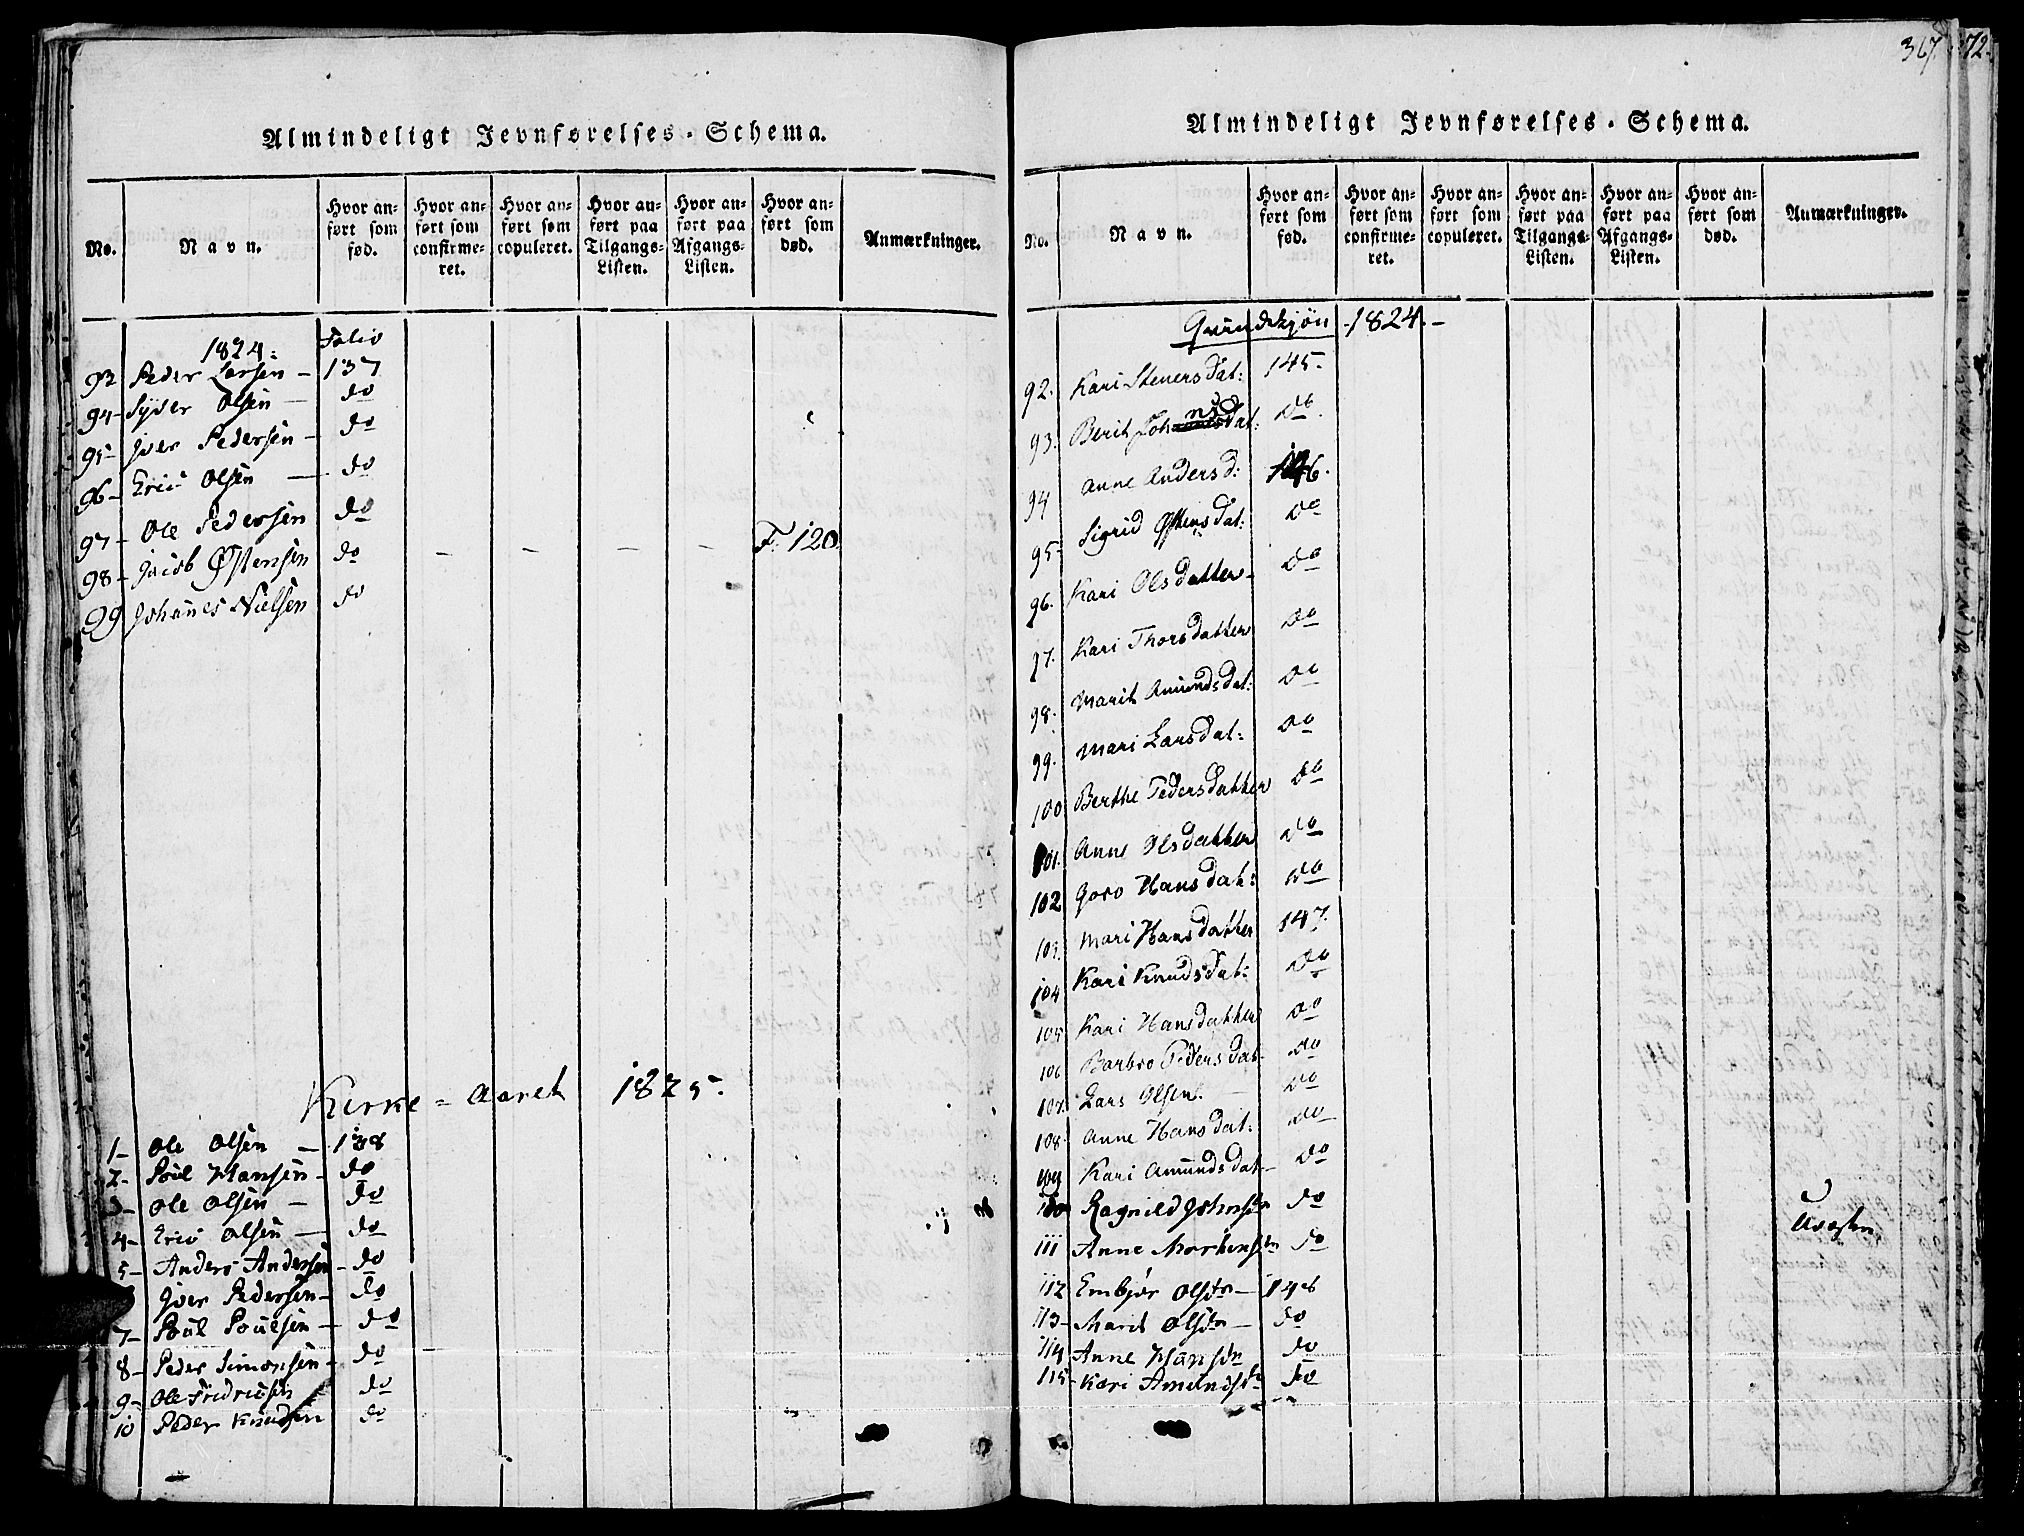 367.
72.
Almindeligt Jevnførelses-Schema.
No. Navn. Hvor anført som fød. Hvor anført som confirmeret. Hvor anført som copuleret. Hvor anført paa Tilgangs-Listen. Hvor anført paa Afgangs-Listen. Hvor anført som død. Anmærkninger.
1824: Folio
93 Peder Larsen - 137
94- Syver Olsen - do
95 Iver Pedersen - do
96- Eric Olsen - do
97- Ole Pedersen do
98- Jacob Østensen do - - - - F. 120
99 Johanes Nielsen do
Kirke-Aaret 1825.
1- Ole Olsen - 138
2- Poul Hansen - do
3- Ole Olsen - do
4- Eric Olsen - do
5- Anders Andersen - do
6 Iver Pedersen - do
7- Poul Poulsen - do
8- Peder Simonsen - do
9- Ole Fridricsen do
10 Peder Knudsen do
Almindeligt Jevnførelses-Schema.
No. Navn. Hvor anført som fød. Hvor anført som confirmeret. Hvor anført som copuleret. Hvor anført paa Tilgangs-Listen. Hvor anført paa Afgangs-Listen. Hvor anført som død. Anmærkninger.
Qvindekjøn 1824.-
92. Kari Stenersdat: 145.
93. Berit Johnsdat: do.
94 Anne Andersd: 146.
95 Sigrid Østensdat: do
96. Kari Olsdatter do
97. Kari Thorsdatter do
98. Marit Amundsdat: do
99. Mari Larsdat: do
100 Berthe Pedersdatter do
101. Anne Olsdatter do
102 Goro Hansdat: do
103. Mari Hansdatter 147.
104 Kari Knudsdat: do
105 Kari Hansdatter do
106 Barbro Pedersdat do
107. Lars Olsen. - do
108. Anne Hansdat: do
109 Kari Amundsdat- do
110 Ragnild Johnsdtr do
111 Anne Mortensdtr do
112 Embjør Olsdtr - 148
113- Marit Olsdtr - do
114 Anne Hansdtr do
115- Kari Amundsdtr do